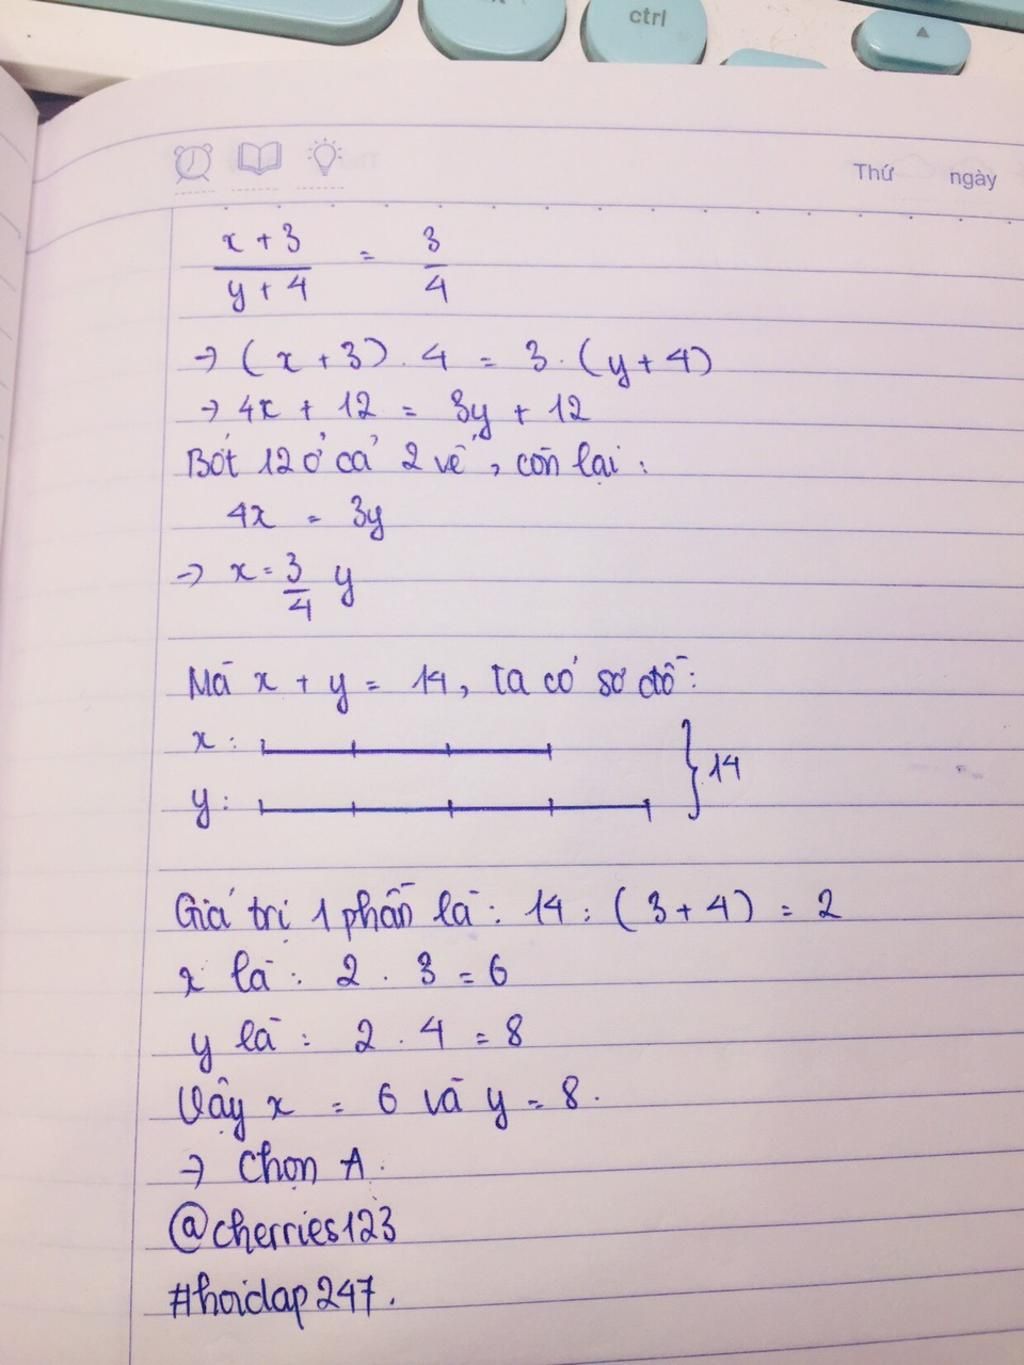 ctrl
Thứ ngày
x + 3 / y + 4 = 3 / 4
→ (x + 3) . 4 = 3 . (y + 4)
→ 4x + 12 = 3y + 12
Bớt 12 ở cả 2 vế, còn lại :
4x = 3y
→ x = 3/4 y
Mà x + y = 14, ta có sơ đồ :
x :
14
y :
Giá trị 1 phần là : 14 : (3 + 4) = 2
x là : 2 . 3 = 6
y là : 2 . 4 = 8
Vậy x = 6 và y = 8.
→ Chọn A.
@cherries123
#hoidap247.